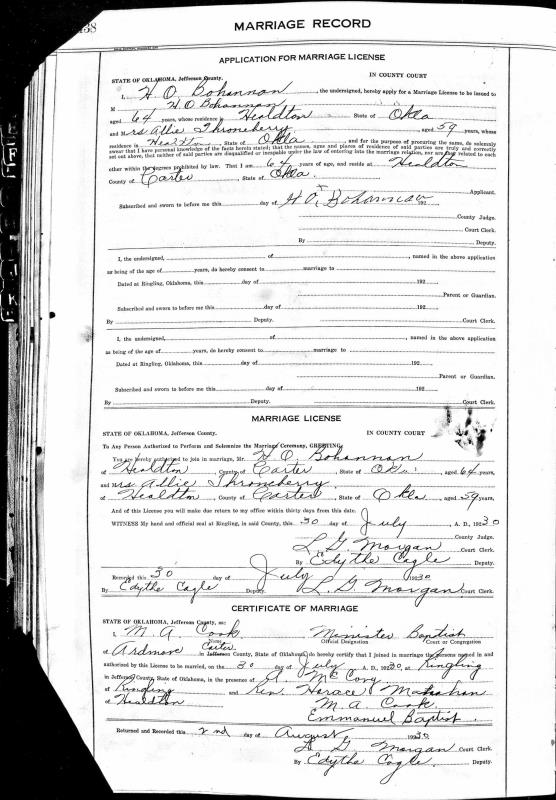 138
MARRIAGE RECORD
APPLICATION FOR MARRIAGE LICENSE
STATE OF OKLAHOMA, Jefferson County. IN COUNTY COURT
I, H O Bohannan, the undersigned, hereby apply for a Marriage License to be issued to
M H O Bohannan
aged 64 years, whose residence is Healdton State of Okla
and Mrs Allie Throneberry aged 59 years, whose
residence is Healdton, State of Okla, and for the purpose of procuring the same, do solemnly
swear that I have personal knowledge of the facts herein stated; that the names, ages and places of residence of said parties are truly and correctly
set out above, that neither of said parties are disqualified or incapable under the law of entering into the marriage relation, nor are they related to each
other within the degrees prohibited by law. That I am 64 years of age, and reside at Healdton
County of Carter, State of Okla.
H O, Bohannan Applicant.
Subscribed and sworn to before me this day of 192
County Judge.
Court Clerk.
By Deputy.
I, the undersigned, of , named in the above application
as being of the age of years, do hereby consent to marriage to
Dated at Ringling, Oklahoma, this day of 192
Parent or Guardian.
Subscribed and sworn to before me this day of 192
By Deputy. Court Clerk.
I, the undersigned, of , named in the above application
as being of the age of years, do hereby consent to marriage to
Dated at Ringling, Oklahoma, this day of 192
Parent or Guardian.
Subscribed and sworn to before me this day of 192
By Deputy. Court Clerk.
MARRIAGE LICENSE
STATE OF OKLAHOMA, Jefferson County. IN COUNTY COURT
To Any Person Authorized to Perform and Solemnize the Marriage Ceremony, GREETING:
You are hereby authorized to join in marriage, Mr. H O. Bohannan
of Healdton, County of Carter, State of Okla, aged 64 years,
and Mrs Allie Throneberry
of Healdton, County of Carter, State of Okla. aged 59 years,
And of this License you will make due return to my office within thirty days from this date.
WITNESS My hand and official seal at Ringling, in said County, this 30 day of July, A. D., 1930
County Judge.
L. G. Morgan Court Clerk.
By Edythe Cagle Deputy.
Recorded this 30 day of July 1930
By Edythe Cagle Deputy. L. G. Morgan Court Clerk.
CERTIFICATE OF MARRIAGE
STATE OF OKLAHOMA, Jefferson County, ss:
I, M. A. Cook Minister Baptist
Name Official Designation Court or Congregation
of Ardmore Carter in Jefferson County, State of Oklahoma, do hereby certify that I joined in marriage the persons named in and
authorized by this License to be married, on the 30 day of July A. D., 1930, at Ringling
in Jefferson County, State of Oklahoma, in the presence of McCoy
of Ringling and Rev. Horace
of Healdton M. A. Cook
Emmanuel Baptist.
Returned and Recorded this 2nd day of August 1930
L. G. Morgan Court Clerk.
By Edythe Cagle. Deputy.